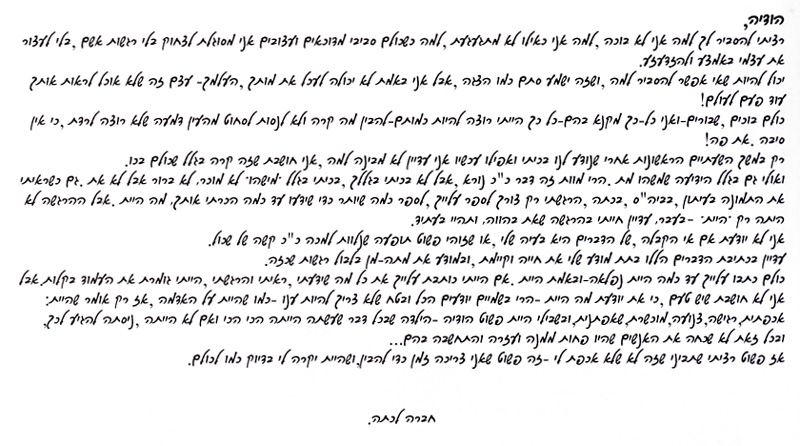 הודיה,
רציתי להסביר לך למה אני לא בוכה, למה אני כאילו לא מתגעגעת, למה כשכולם סביבי מדוכאים ועצובים אני מסוגלת לצחוק בלי רגשות אשם, בלי לעצור
את עצמי באמצע ולהזדעזע.
יכול להיות שאי אפשר להסביר למה, ושזה ישמע סתם כמו הצגה, אבל אני באמת לא יכולה לעכל את מותך, העלמך- עצם זה שלא אוכל לראות אותך
עוד פעם לעולם!
כולם בוכים, שבורים-ואני כל-כך מקנא בהם-כל כך הייתי רוצה להיות כמותם-להבין מה קרה ולא לנסות לסחוט מהעין דמעה שלא רוצה לרדת, כי אין
סיבה. את פה!
רק במשך השעתיים הראשונות אחרי שנודע לנו בכיתי ואפילו עכשיו אני עדיין לא מבינה למה, אני חושבת שזה קרה בגלל שכולם בכו.
ואולי גם בגלל הידיעה שמשהו מת. הרי מוות זה דבר כ"כ נורא, אבל לא בכיתי בגללך, בכיתי בגלל "מישהו" לא מוכר, לא ברור אבל לא את. גם כשראיתי
את התמונה בעיתון, בביה"ס, בכתה, הרגשתי רק צורך לספר עלייך, לספר כמה שיותר כדי שידעו עד כמה הכרתי אותך, מה היית. אבל ההרגשה לא
היתה רק "היית" -בעבר, עדיין חייתי בהרגשה שאת בהווה, ותהיי בעתיד.
אני לא יודעת אם אי הקבלה, של הדברים היא בעיה שלי, או שזוהי פשוט תופעה שנלוות למכה כ"כ קשה של שכול.
עדיין בכתיבת הדברים הללו בתת מודע שלי את חייה וקיימת, ובמודע את מתה-מן בלבול רגשות שכזה.
כולם כתבו עלייך עד כמה היית נפלאה-ובאמת היית. אם הייתי כותבת עלייך את כל מה שידעתי, ראיתי והרגשתי, הייתי גומרת את העמוד בקלות, אבל
אני לא חושבת שיש טעם, כי את יודעת מה היית -הרי בשמיים יודעים הכל ובטח שלא צריך להיות ענו -כמו שהיית על האדמה, אז רק אומר שהיית:
אכפתית, רגישה, צנועה, מוכשרת, שאפתנית, ובשבילי היית פשוט הודיה -הילדה שבכל דבר שעשתה הייתה הכי הכי ואם לא הייתה, ניסתה להגיע לכך,
ובכל זאת לא שכחה את האנשים שהיו פחות ממנה ועזרה והתחשבה בהם...
אז פשוט רציתי שתביני שזה לא שלא אכפת לי -זה פשוט שאני צריכה זמן כדי להבין, ושהיית יקרה לי בדיוק כמו לכולם.
חברה לכתה.